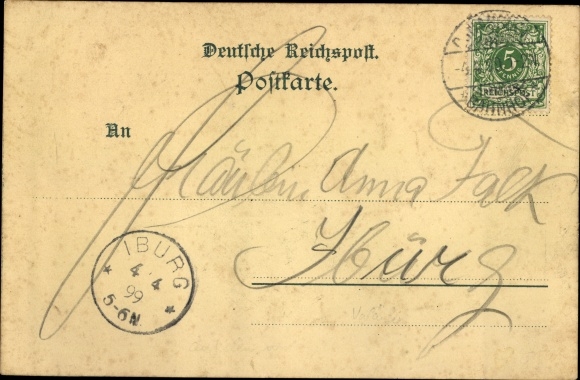 Deutsche Reichspost.
Postkarte.
5
REICHSPOST
BAHNHOF
An
Fräulein Anna Falk
Iburg
IBURG
4 4
99
5-6N.